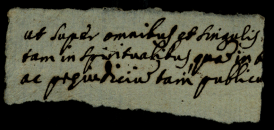 ut super omnibus et singulis
tam in spiritualibus, qua in
ac prejudiciu tam publicu